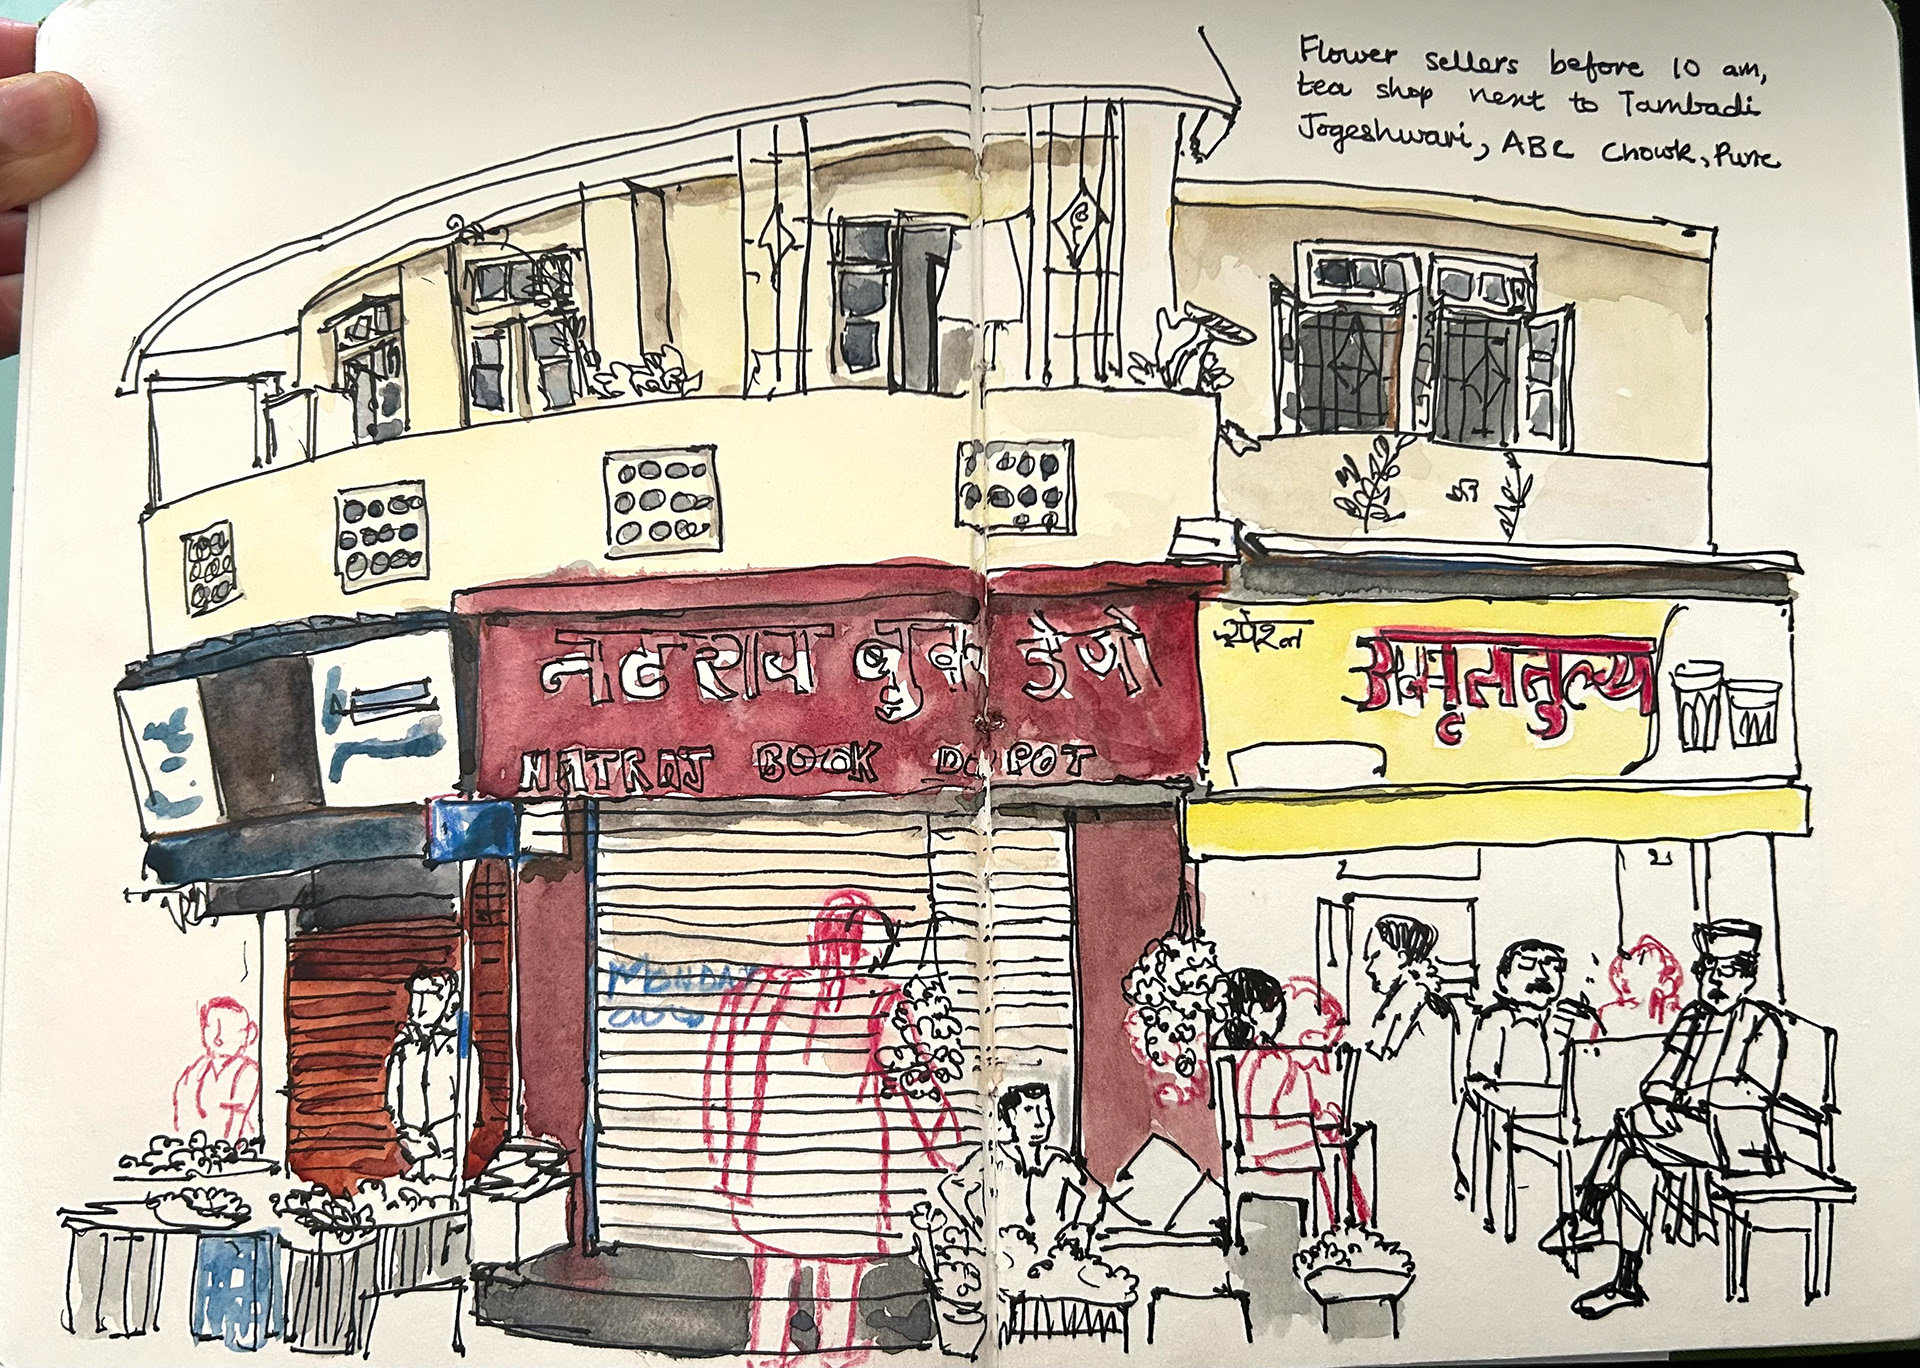 Flower sellers before 10 am,
tea shop next to Tambadi
Jogeshwari, ABC Chowk, Pune
नटराज बुक डेपो
NATRAJ BOOK DEPOT
स्पेशल
अमृततुल्य
MONDAY